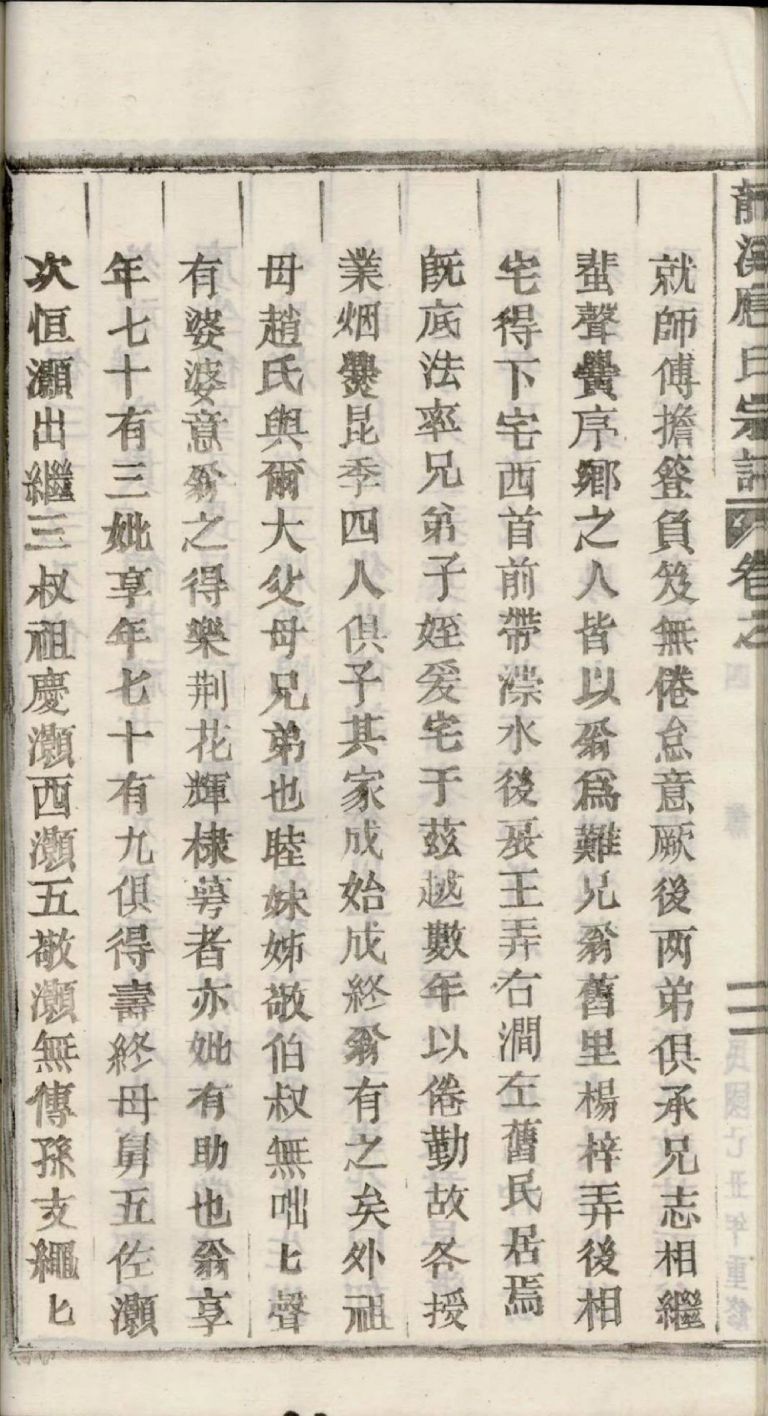 龍溪應氏宗譜 卷之 二 民國己丑年重修
就師傅擔簦負笈無倦怠意厥後两弟俱承兄志相繼
蜚聲黌序鄉之人皆以翁爲難兄翁舊里楊梓弄後相
宅得下宅西首前帶潆水後扆王弄右澗左舊民居焉
旣底法率兄弟子姪爰宅于茲越數年以倦勤故各授
業烟爨昆季四人俱子其家成始成終翁有之矣外祖
母趙氏與爾大父母兄弟也睦妹姊敬伯叔無咄匕聲
有婆婆意翁之得樂荆花輝棣萼者亦妣有助也翁享
年七十有三妣享年七十有九俱得壽終母舅五佐灝
次恒灝出繼三叔祖慶灝西灝五敬灝無傳孫支繩匕